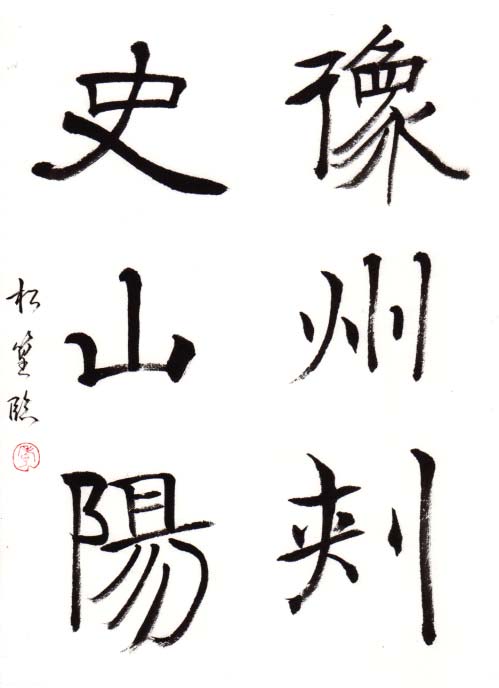 豫州刺
史山陽
松臨